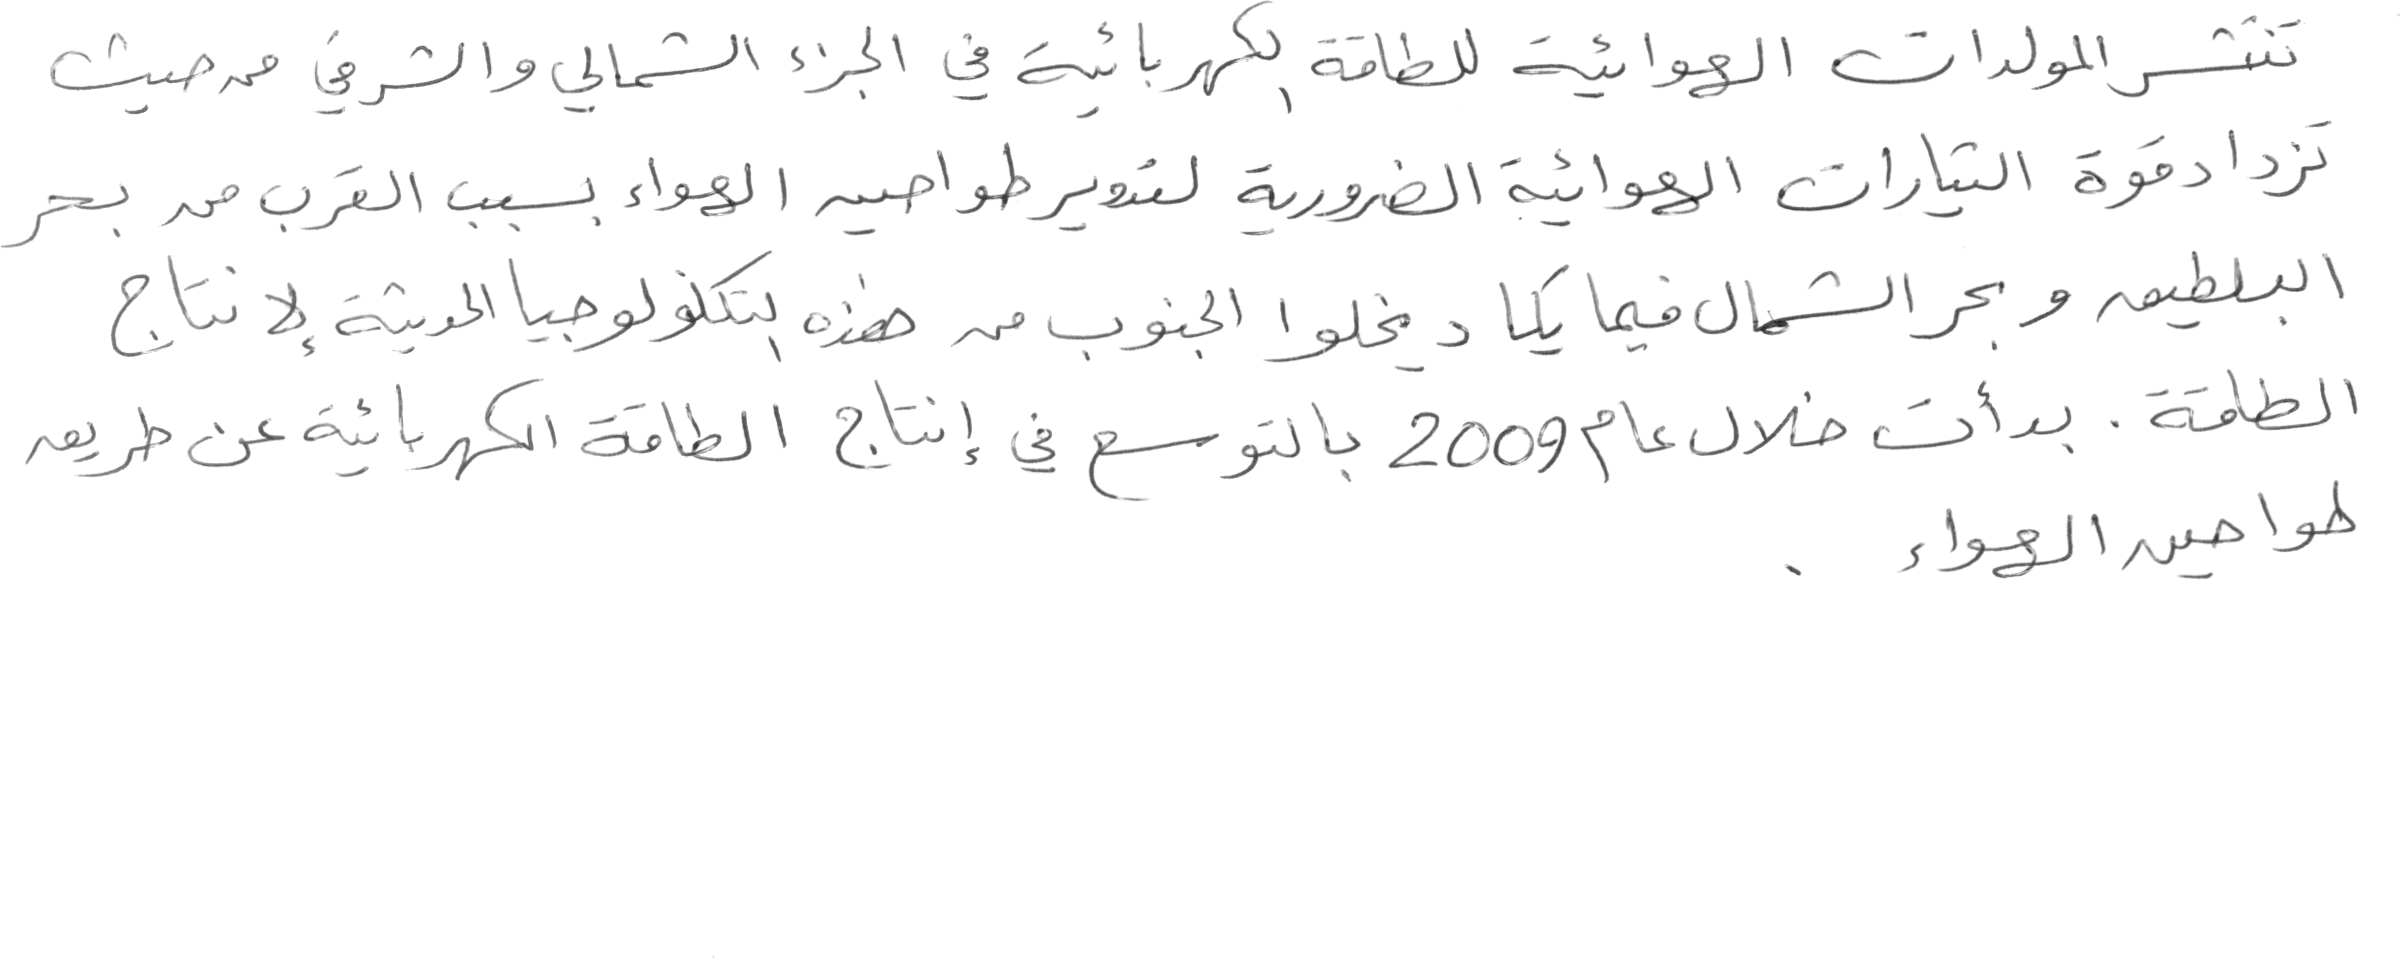 تنتشر المولدات الهوائية للطاقة الكهربائية في الجزء الشمالي والشرقي من حيث
تزداد قوة التيارات الهوائية الضرورية لتدوير طواحين الهواء بسبب القرب من بحر
البلطيق وبحر الشمال فيما يكاد يخلوا الجنوب من هذه التكنولوجيا الحديثة لإنتاج
الطاقة . بدأت خلال عام 2009 بالتوسع في إنتاج الطاقة الكهربائية عن طريق
طواحين الهواء .